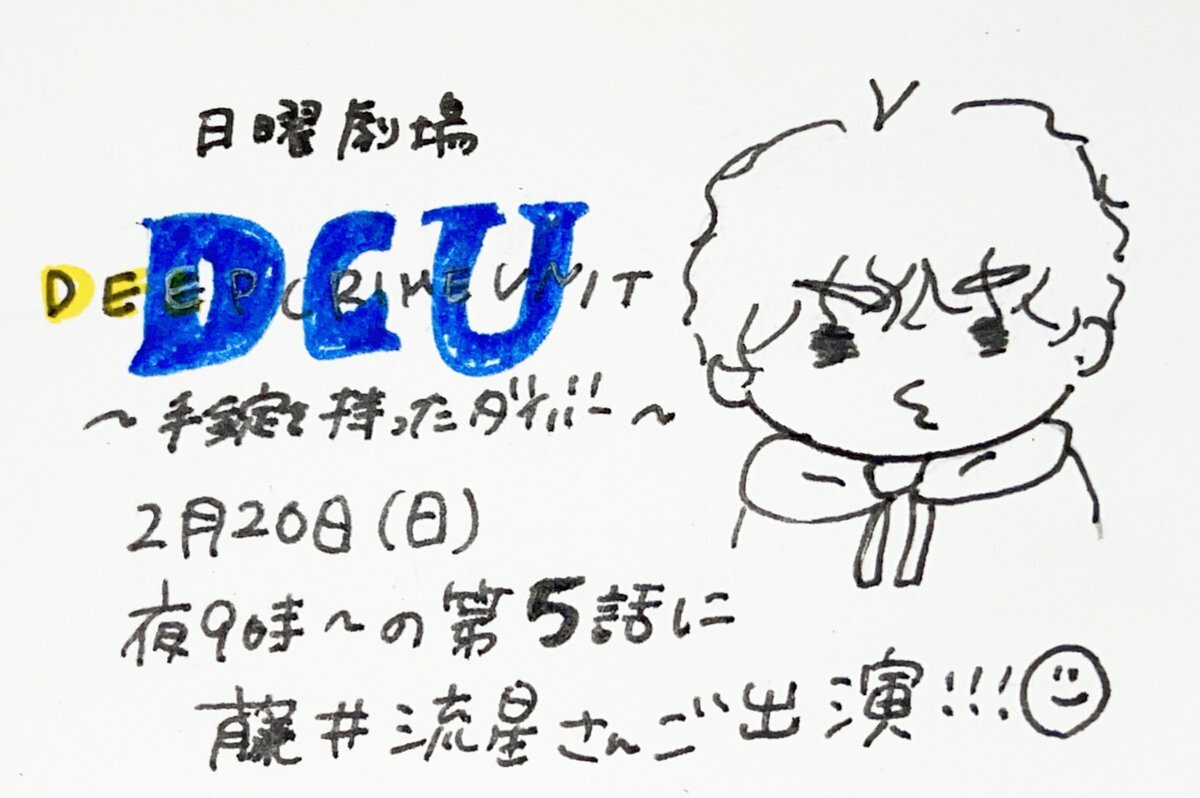 日曜劇場
DCU
DEEP CRIME UNIT
～手錠を持ったダイバー～
2月20日(日)
夜9時～の第5話に
藤井流星さんご出演!!!